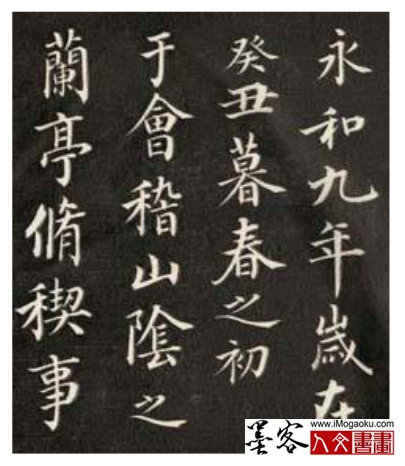 永和九年歲在
癸丑暮春之初
于會稽山陰之
蘭亭脩稧事
www.iMogaoku.com
墨客
人文書畫